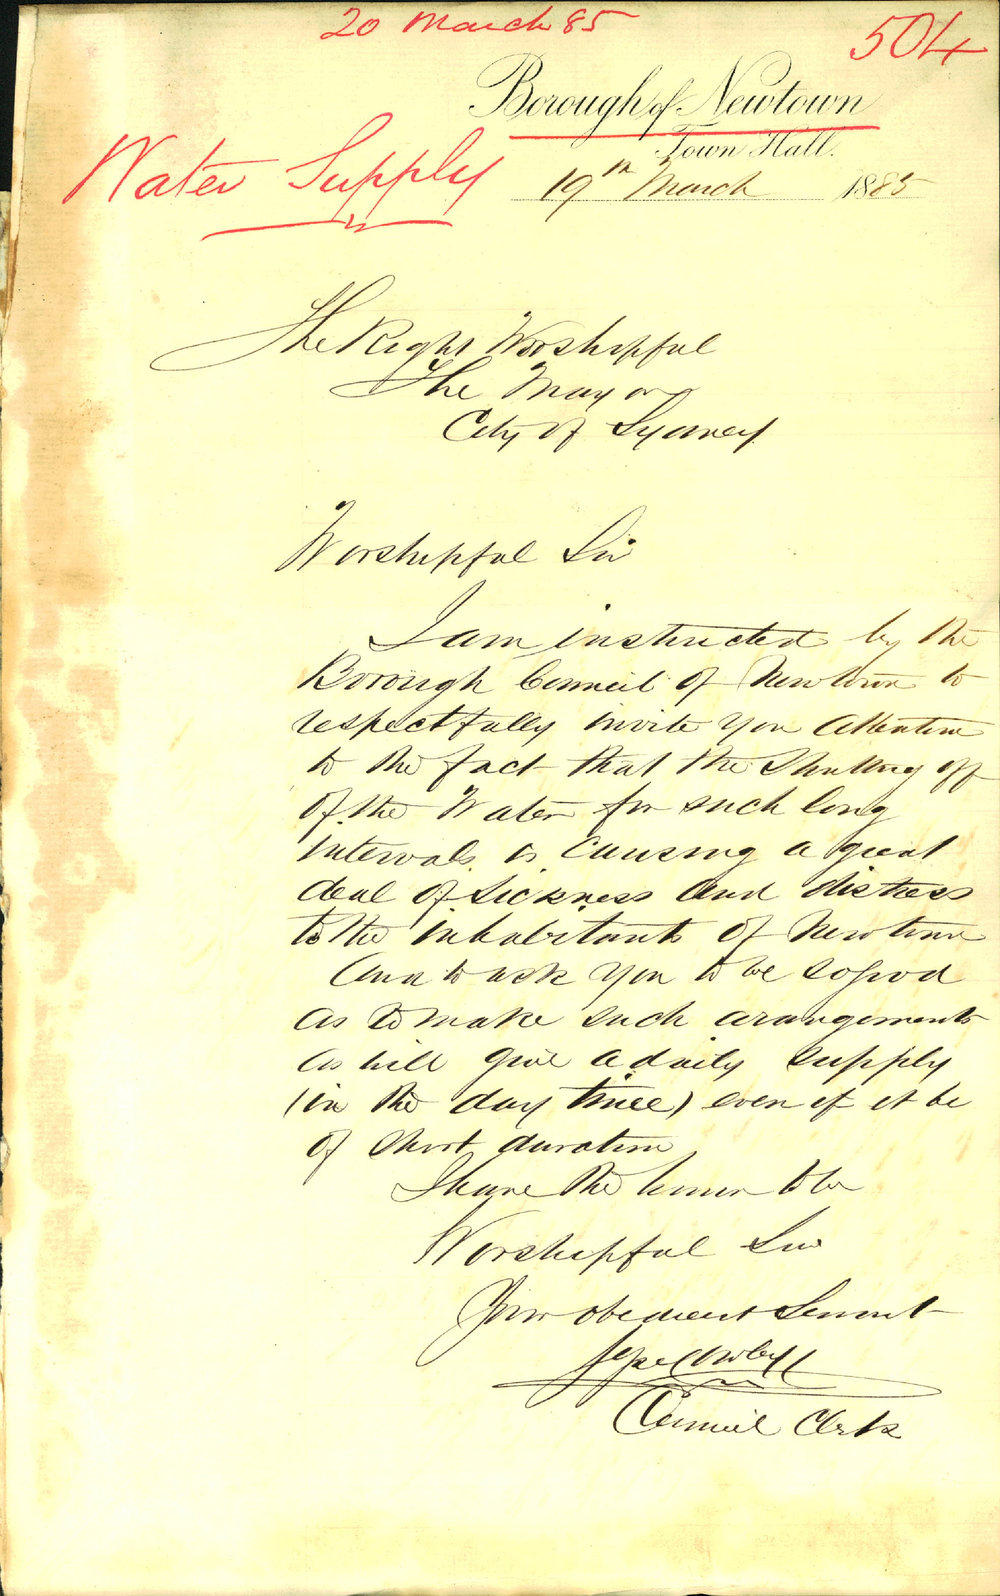 20 March 85
504
Borough of Newtown
Town Hall.
Water Supply
19th March 1885
The Right Worshipful
The Mayor
City of Sydney
Worshipful Sir
I am instructed by the
Borough Council of Newtown to
respectfully invite you attention
to the fact that the Shutting off
of the Water for such long
intervals is causing a great
deal of sickness and distress
to the inhabitants of Newtown
and to ask you to be so good
as to make such arangements
as will give a daily supply
(in the day time) even if it be
of short duration
I have the honor to be
Worshipful Sir
Your obedient Servant
Council Clerk